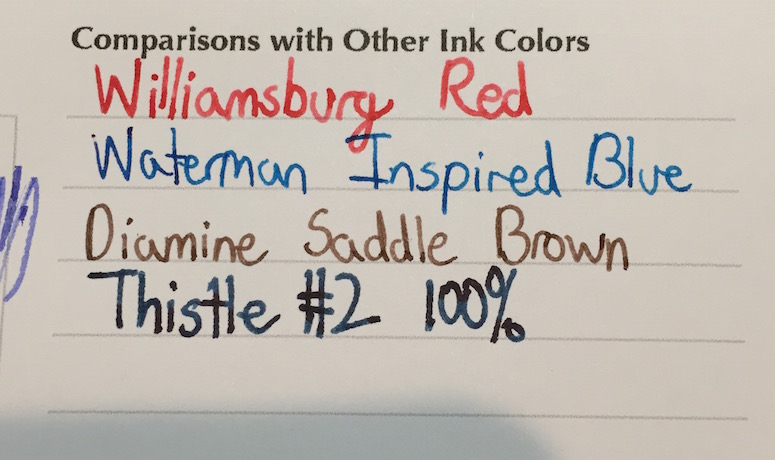 Comparisons with Other Ink Colors
Williamsburg Red
Waterman Inspired Blue
Diamine Saddle Brown
Thistle #2 100%